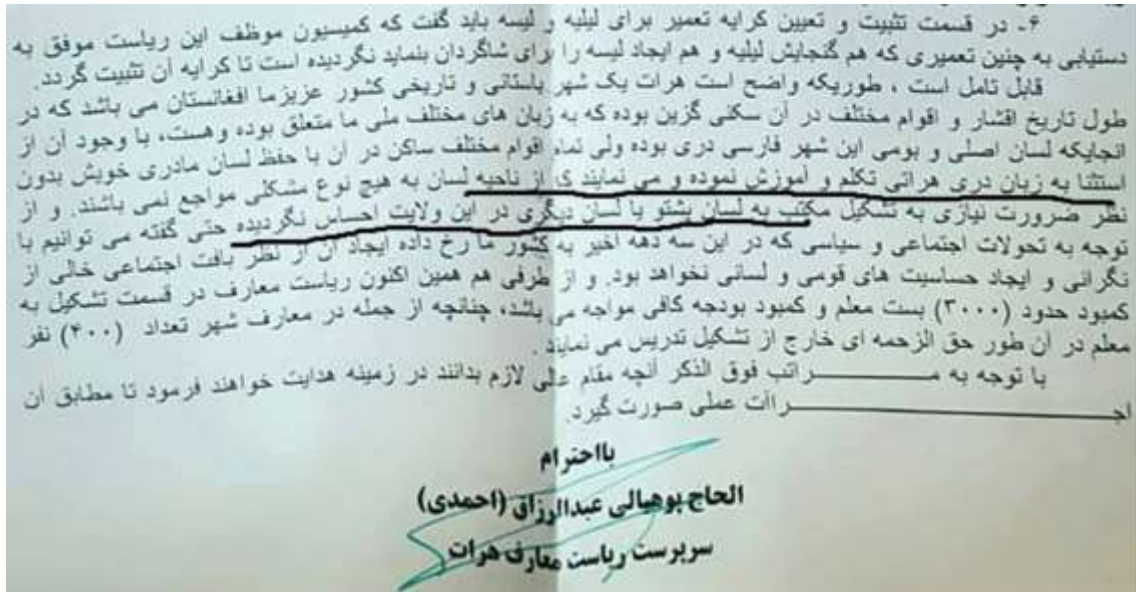 ۶- در قسمت تثبیت و تعیین کرایه تعمیر برای لیلیه و لیسه باید گفت که کمیسیون موظف این ریاست موفق به
دستیابی به چنین تعمیری که هم گنجایش لیلیه و هم ایجاد لیسه را برای شاگردان بنماید نگردیده است تا کرایه آن تثبیت گردد.
قابل تامل است ، طوریکه واضح است هرات یک شهر باستانی و تاریخی کشور عزیزما افغانستان می باشد که در
طول تاریخ اقشار و اقوام مختلف در آن سکنی گزین بوده که به زبان های مختلف ملی ما متعلق بوده وهست، با وجود آن از
انجایکه لسان اصلی و بومی این شهر فارسی دری بوده ولی تمام اقوام مختلف ساکن در آن با حفظ لسان مادری خویش بدون
استثنا به زبان دری هراتی تکلم و آموزش نموده و می نمایند که از ناحیه لسان به هیچ نوع مشکلی مواجع نمی باشند. و از
نظر ضرورت نیازی به تشکیل مکتب به لسان پشتو یا لسان دیگری در این ولایت احساس نگردیده حتی گفته می توانیم با
توجه به تحولات اجتماعی و سیاسی که در این سه دهه اخیر به کشور ما رخ داده ایجاد آن از نظر بافت اجتماعی خالی از
نگرانی و ایجاد حساسیت های قومی و لسانی نخواهد بود. و از طرفی هم همین اکنون ریاست معارف در قسمت تشکیل به
کمبود حدود (۳۰۰۰) بست معلم و کمبود بودجه کافی مواجه می باشد، چنانچه از جمله در معارف شهر تعداد (۴۰۰) نفر
معلم در آن طور حق الزحمه ای خارج از تشکیل تدریس می نمایند .
با توجه به مـــــــراتب فوق الذکر آنچه مقام عالی لازم بدانند در زمینه هدایت خواهند فرمود تا مطابق آن
اجـــــــــــــراآت عملی صورت گیرد.
بااحترام
الحاج پوهیالی عبدالرزاق (احمدی)
سرپرست ریاست معارف هرات